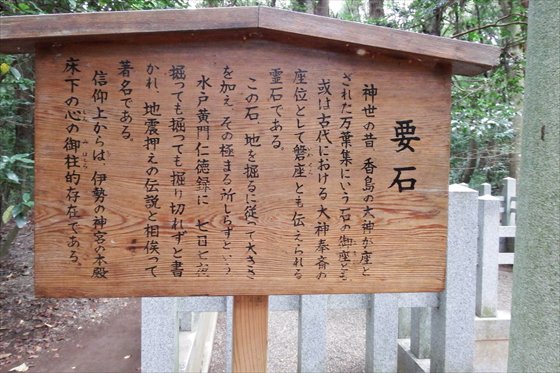 要石
神世の昔 香島の大神が座と
された万葉集にいう石の御座とも
或は古代における大神奉斎の
座位として磐座とも伝えられる
霊石である。
この石、地を掘るに従って大きさ
を加え、その極まる所しらずという
水戸黄門仁徳録に 七日七夜
掘っても掘っても掘り切れずと書
かれ、地震押えの伝説と相俟って
著名である。
信仰上からは、伊勢の神宮の本殿
床下の心の御柱的存在である。